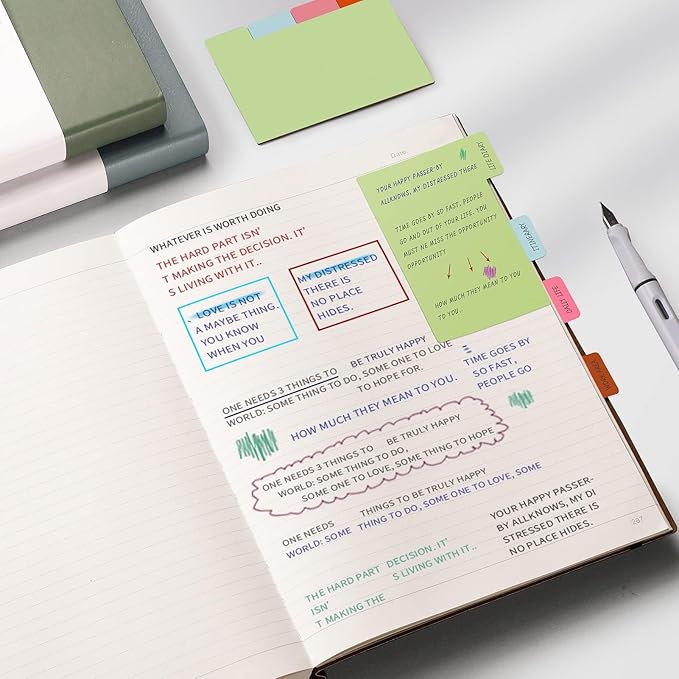 Date
WHATEVER IS WORTH DOING
THE HARD PART ISN'
T MAKING THE DECISION. IT'
S LIVING WITH IT..
LOVE IS NOT
A MAYBE THING.
YOU KNOW
WHEN YOU
MY DISTRESSED
THERE IS
NO PLACE
HIDES.
YOUR HAPPY PASSER-BY
ALLKNOWS, MY DISTRESSED THERE
TIME GOES BY SO FAST, PEOPLE
GO AND OUT OF YOUR LIFE. YOU
MUST NE MISS THE OPPORTUNITY
OPPORTUNITY
HOW MUCH THEY MEAN TO YOU
TO YOU..
LIFE DIARY
ITINERARY
DAILY LIFE
WORK AREA
ONE NEEDS 3 THINGS TO BE TRULY HAPPY
WORLD: SOME THING TO DO, SOME ONE TO LOVE
TO HOPE FOR.
TIME GOES BY
SO FAST,
PEOPLE GO
HOW MUCH THEY MEAN TO YOU.
ONE NEEDS 3 THINGS TO BE TRULY HAPPY
WORLD: SOME THING TO DO,
SOME ONE TO LOVE, SOME THING TO HOPE
ONE NEEDS THINGS TO BE TRULY HAPPY
WORLD: SOME THING TO DO, SOME ONE TO LOVE, SOME
YOUR HAPPY PASSER-
BY ALLKNOWS, MY DI
STRESSED THERE IS
NO PLACE HIDES.
THE HARD PART DECISION. IT'
ISN' S LIVING WITH IT..
T MAKING THE
287